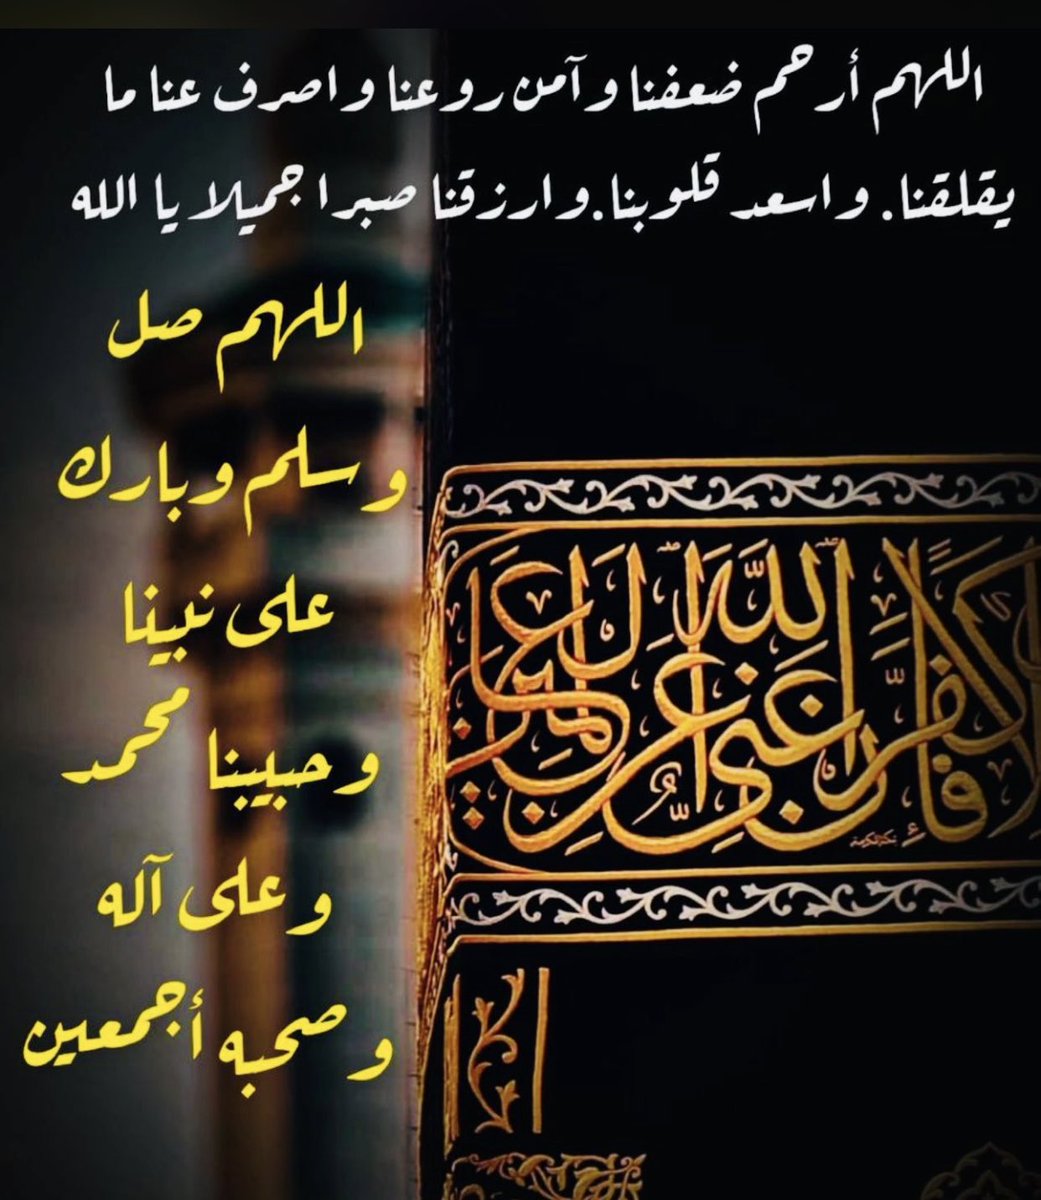 اللهم أرحم ضعفنا وآمن روعنا واصرف عنا ما
يقلقنا. واسعد قلوبنا.وارزقنا صبرا جميلا يا الله
اللهم صل
وسلم وبارك
على نبينا
وحبيبنا محمد
وعلى آله
وصحبه أجمعين
فإن الله غني عن العالمين